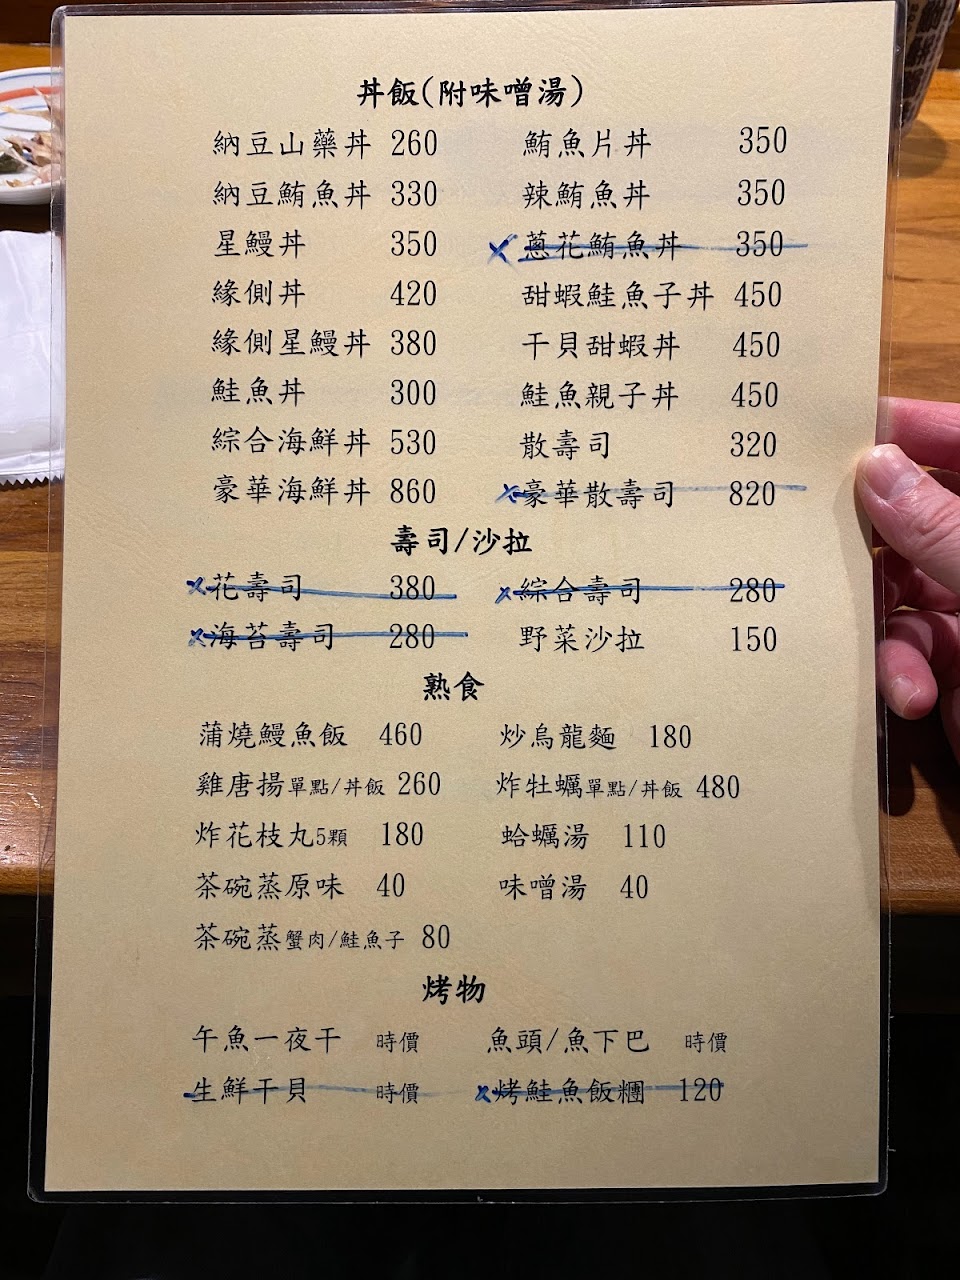 丼飯(附味噌湯)
納豆山藥丼 260 鮪魚片丼 350
納豆鮪魚丼 330 辣鮪魚丼 350
星鰻丼 350 蔥花鮪魚丼 350
緣側丼 420 甜蝦鮭魚子丼 450
緣側星鰻丼 380 干貝甜蝦丼 450
鮭魚丼 300 鮭魚親子丼 450
綜合海鮮丼 530 散壽司 320
豪華海鮮丼 860 豪華散壽司 820
壽司/沙拉
花壽司 380 綜合壽司 280
海苔壽司 280 野菜沙拉 150
熟食
蒲燒鰻魚飯 460 炒烏龍麵 180
雞唐揚單點/丼飯 260 炸牡蠣單點/丼飯 480
炸花枝丸5顆 180 蛤蠣湯 110
茶碗蒸原味 40 味噌湯 40
茶碗蒸蟹肉/鮭魚子 80
烤物
午魚一夜干 時價 魚頭/魚下巴 時價
生鮮干貝 時價 烤鮭魚飯糰 120